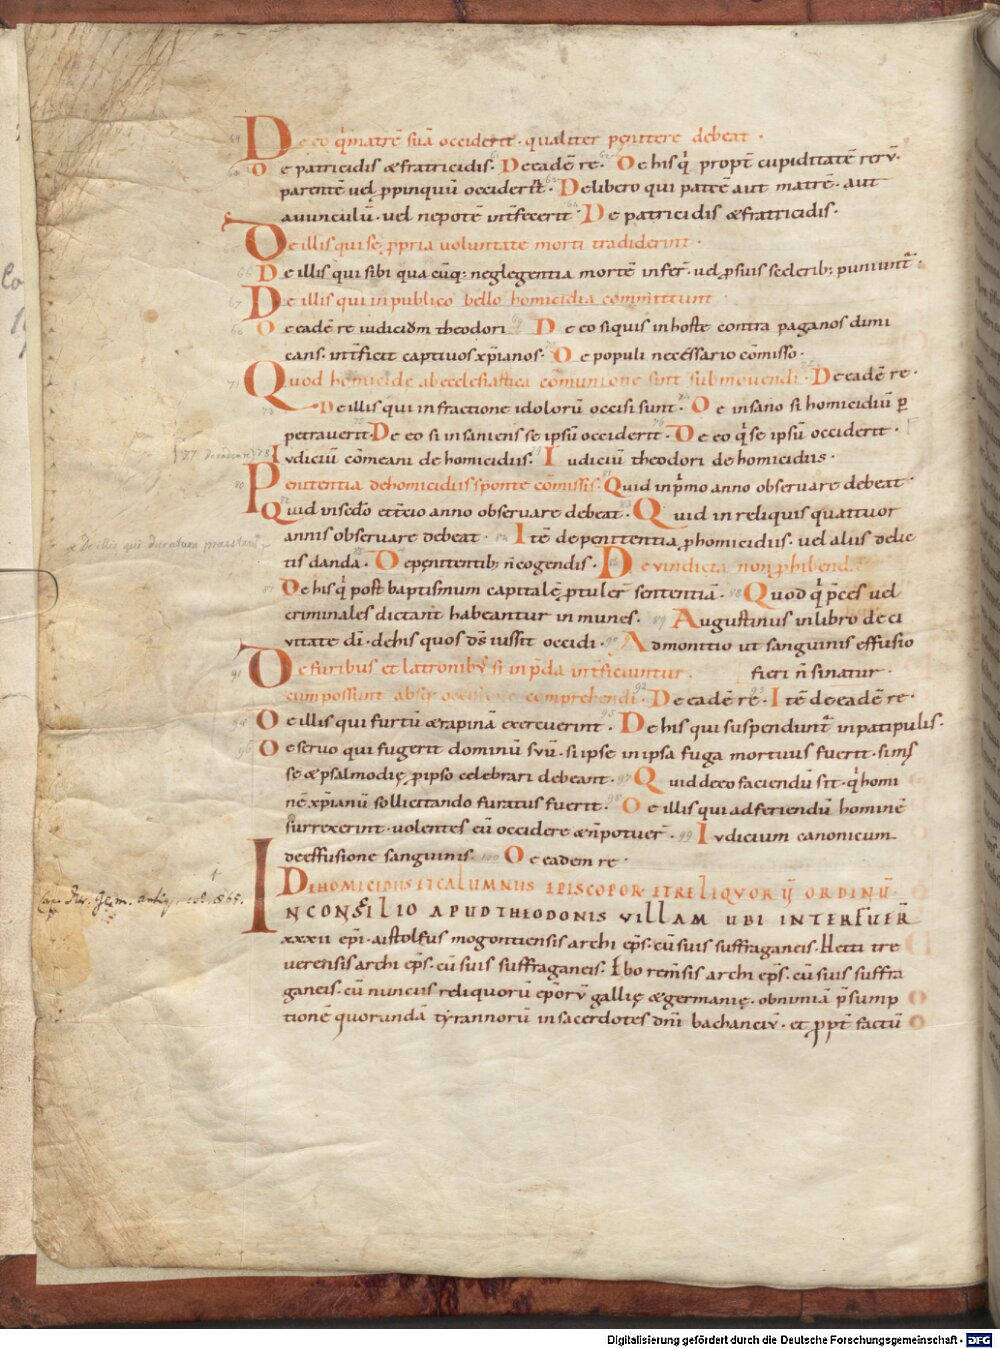 De eo q̇ matrē suā occiderit · qualiter pęnitere debeat ·
De patricidis & fratricidis · De eadē re · De his q̇ propt̄ cupiditatē rerū ·
parentē vel ꝓpinquū occiderīt · De libero qui patrē aut matrē · aut
avunculū · vel nepotē int̄fecerit · De patricidis & fratricidis ·
De illis qui se ꝓpria voluntate morti tradiderint ·
De illis qui sibi qua cūq; neglegentia mortē infer̄ · vel ꝓ suis sceleribꝫ puniunt̄ ·
De illis qui in publico bello homicidia committunt ·
De eadē re iudiciōm theodori De eo si quis in hoste contra paganos dimi
cans · int̄ficit captivos xp̄ianos · De populi necessario cōmisso ·
Quod homicide ab ecclesiastica cōmunione sint submovendi · De eadē re ·
De illis qui in fractione idolorū occisi sunt · De insano si homicidiū ꝑ
petraverit · De eo si insaniens se ipsū occiderit · De eo q̇ se ipsū occiderit ·
Iudiciū cōmeani de homicidiis · Iudiciū theodori de homicidiis ·
Penitentia de homicidiis sponte cōmissis · Quid in p̄mo anno observare debeat ·
Quid in sedō et t̄cio anno observare debeat · Quid in reliquis quattuor
annis observare debeat · Itē de penitentia ꝓ homicidiis · vel aliis delic
tis danda · De pęnitentibꝫ n̄ cogendis · De vindicta non ꝓhibenda
De his q̇ post baptismum capitalē ꝓtuler̄ sententiā · Quod q̇ p̄ces vel
criminales dictant habeantur in munes · Augustinus in libro de ci
vitate dī · de his quos ds̄ iussit occidi · Admonitio ut sanguinis effusio
De furibus et latronibꝰ si in p̄da int̄ficiuntur · fieri n̄ sinatur ·
cum possunt absq; occisione comprehendi · De eadē re · Itē de eadē re ·
De illis qui furtū & rapinā exercuerint · De his qui suspendunt̄ in patipulis ·
De servo qui fugerit dominū suū · si ipse in ipsa fuga mortuus fuerit · si mis
se & psalmodię ꝓ ipso celebrari debeant · Quid de eo faciendū sit · q̇ homi
nē xp̄ianū sollicitando furatus fuerit · De illis qui ad feriendū hominē
surrexerint · volentes eū occidere & n̄ potuer̄ · Iudicium canonicum
de effusione sanguinis · De eadem re ·
DE HOMICIDIIS ET CALUMNIIS EPISCOPOR ET RELIQUORŪ ORDINŪ ·
IN CONSILIO APUD THEODONIS VILLAM UBI INTERFUER̄
xxxii ep̄i · aistolfus mogontiensis archi ep̄s · cū suis suffraganeis · Hetti tre
verensis archi ep̄s · cū suis suffraganeis · Ebo rem̄sis archi ep̄s · cū suis suffra
ganeis · cū nunciis reliquorū ep̄orū gallię & germanię · ob nimiā p̄sump
tionē quorundā tyrannorū in sacerdotes dn̄i bachanciū · et ꝓpt̄ factū
Digitalisierung gefördert durch die Deutsche Forschungsgemeinschaft - DFG